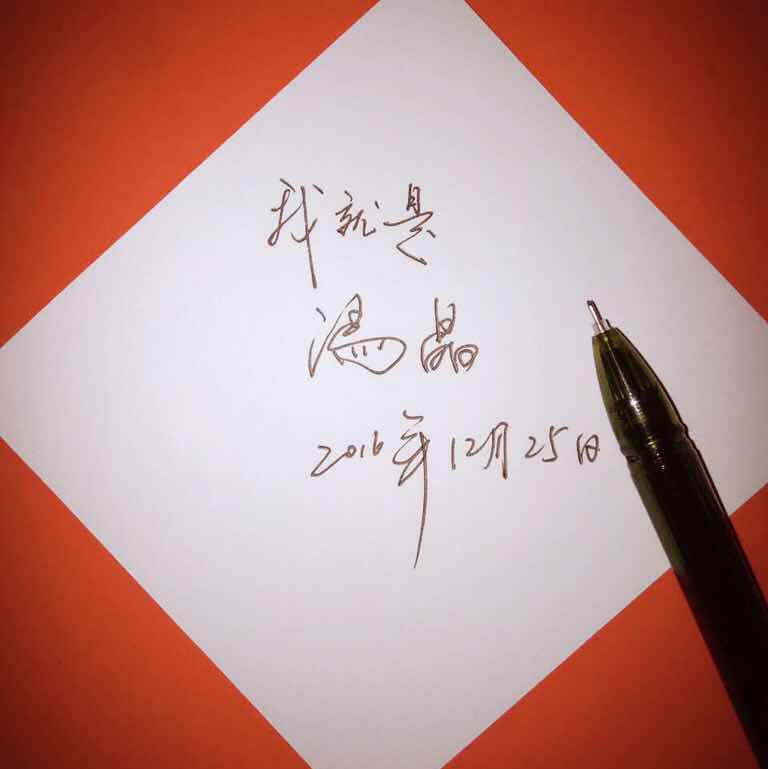 我就是
湯晶
2016年12月25日